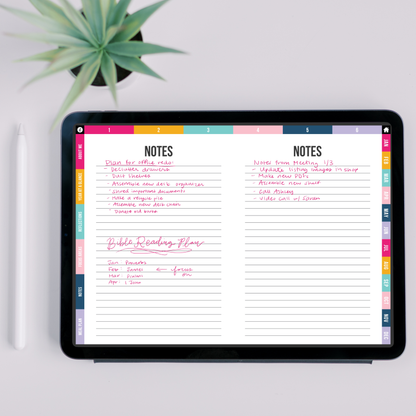 1 2 3 4 5 6
NOTES
Plan for office redo:
- Declutter drawers
- Dust shelves
- Assemble new desk organizer
- Shred important documents
- Make a recycle pile
- Assemble new desk chair
Bible Reading Plan
Jan: Proverbs
Feb: Daniel ← focus on
Mar:
Apr: 1 John
NOTES
Notes from Meeting 1/3
- Update listing images in shop
- Make new PDFs
- Assemble new chart
- Call
- Video call w/
JAN
FEB
MAR
APR
MAY
JUN
JUL
AUG
SEP
OCT
NOV
DEC